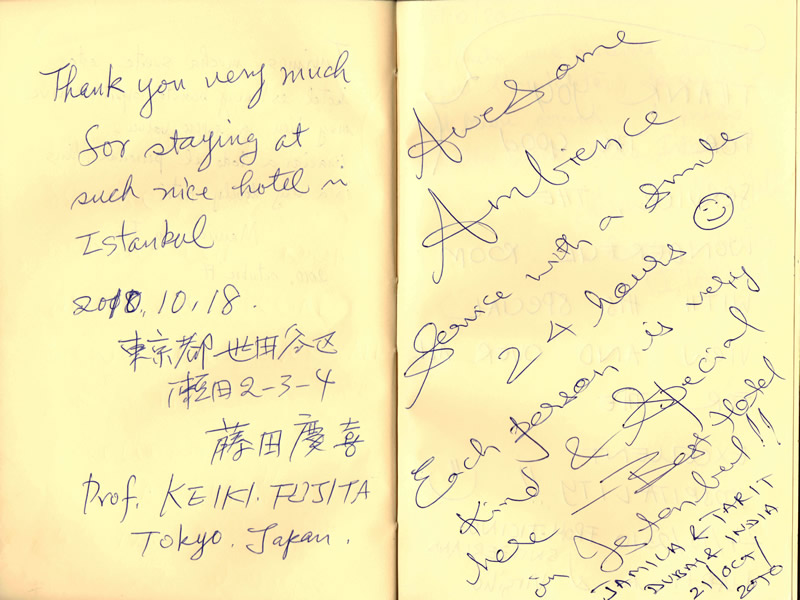 Thank you very much
for staying at
such nice hotel in
Istanbul
2010.10.18.
東京都世田谷区
瀬田2-3-4
藤田慶喜
Prof. KEIKI. FUJITA
Tokyo. Japan.
Awesome
Ambience
Service with a smile
24 hours ☺
Each person is very
kind & special
here – Best Hotel
in Istanbul!!
JAMILA & TARIT
DUBAI & INDIA
21/OCT/
2010